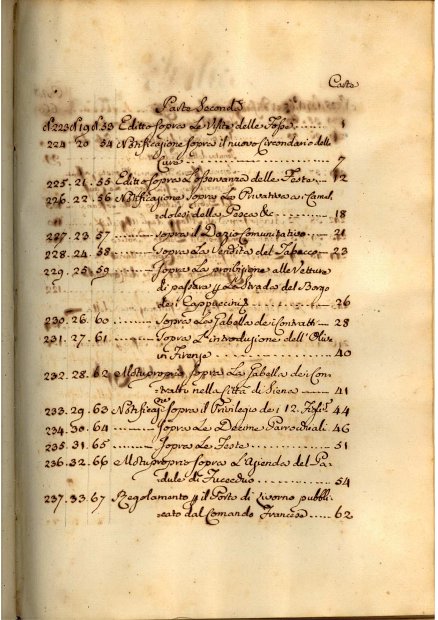 Carte
Parte Seconda
N. 223 N. 19 N. 53 Editto sopra Le Visite delle Fosse 1
224. 20. 54 Notificazione sopra il nuovo Circondario delle
Cure 7
225. 21. 55 Editto sopra L'osservanza delle Feste 12
226. 22. 56 Notificazione sopra La Privativa ai Camal
dolesi della Pesca &c. 18
227. 23. 57 sopra il Dazio Comunitativo 21
228. 24. 58 sopra La Vendita del Tabacco 23
229. 25. 59 sopra La proibizione alle Vetture
di passare p La Strada del Borgo
dei Cappuccini 26
230. 26. 60. sopra La Gabella dei Contratti 28
231. 27. 61 sopra L'introduzione dell'Olio
in Firenze 40
232. 28. 62 Motuproprio sopra La Gabella dei Con
tratti nella Città di Siena 41
233. 29. 63 Notificazne sopra il Privilegio dei 12. Figli 44
234. 30. 64 sopra Le Decime Parrochiali 46
235. 31. 65 sopra Le Feste 51
236. 32. 66 Motuproprio sopra L'Azienda del Pa
dule di Fucecchio 54
237. 33. 67 Regolamento p il Porto di Livorno pubbli
cato dal Comando Francese 62